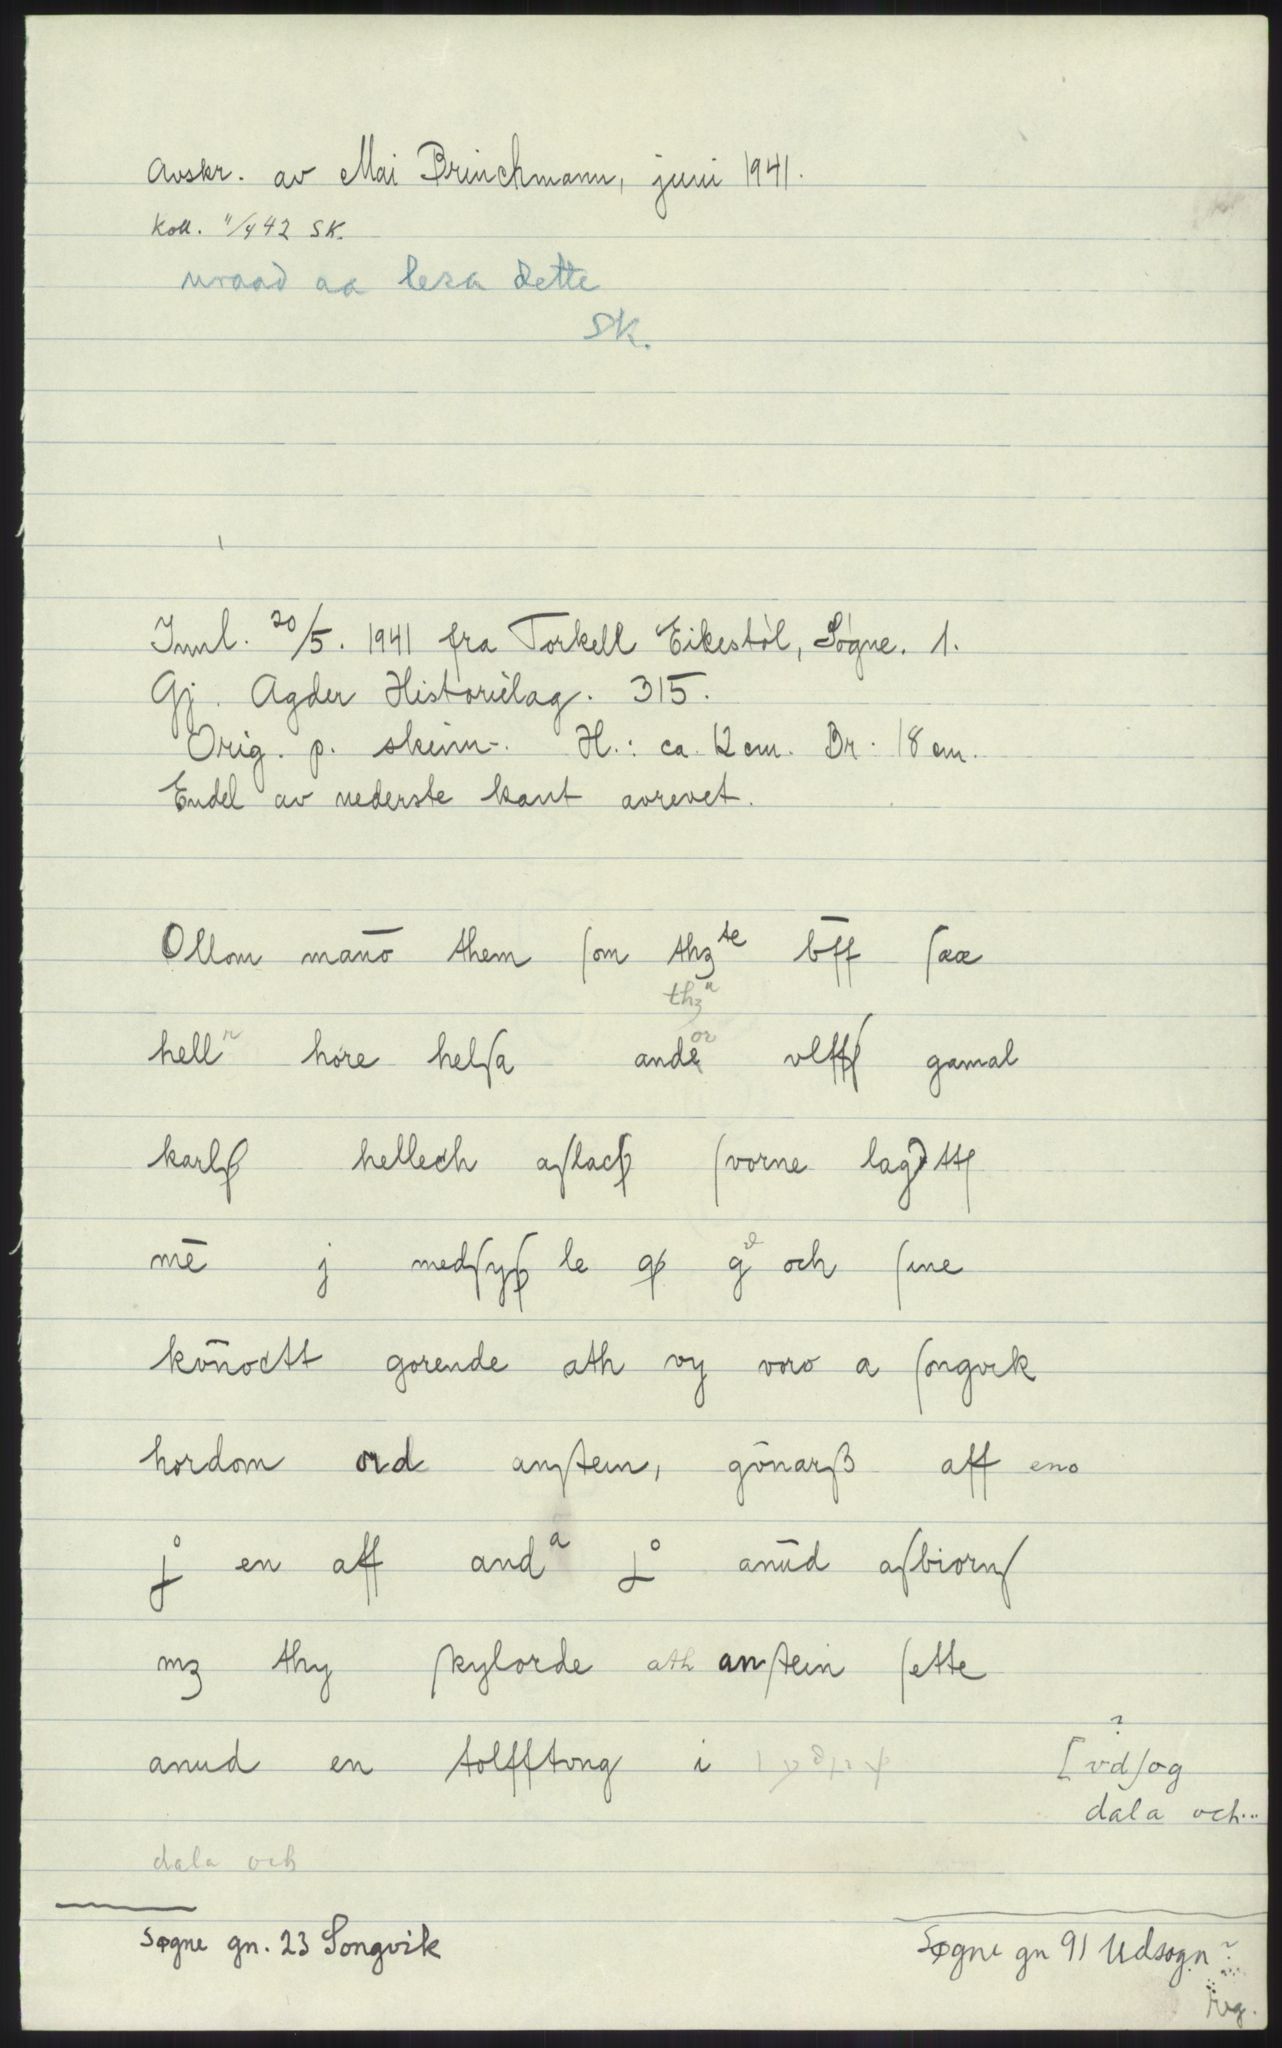 Avskr. av Mai Brinchmann, juni 1941.
Koll. 11/4 42 SK.
uraad aa lesa dette
SK.
Innl. 20/5. 1941 fra Torkell Eikestøl, Søgne. 1.
Gj. Agder Historielag. 315.
Orig. p. skinn. H.: ca. 12 cm. Br. 18 cm.
Endel av nederste kant avrevet.
Ollom man̄o them ſom thꝫ te b̄ff ſææ
thꝫ
hell r høre helſa ande or vlfſ gamal
karlſ hellech aſlacſ ſvorne lag
mē j medſyſ le och ſine
kon̄octt gorende ath vy voro a ſongvik
hordom ord anſtein, gōnarß aff eno
en aff and a anūd aſbiorn
mꝫ thy ſkylorde ath anſtein ſette
anud en tolfftong i [vdſog ?
dala och...
dala och
Søgne gn. 23 Songvik
Søgne gn 91 Udsogn ?